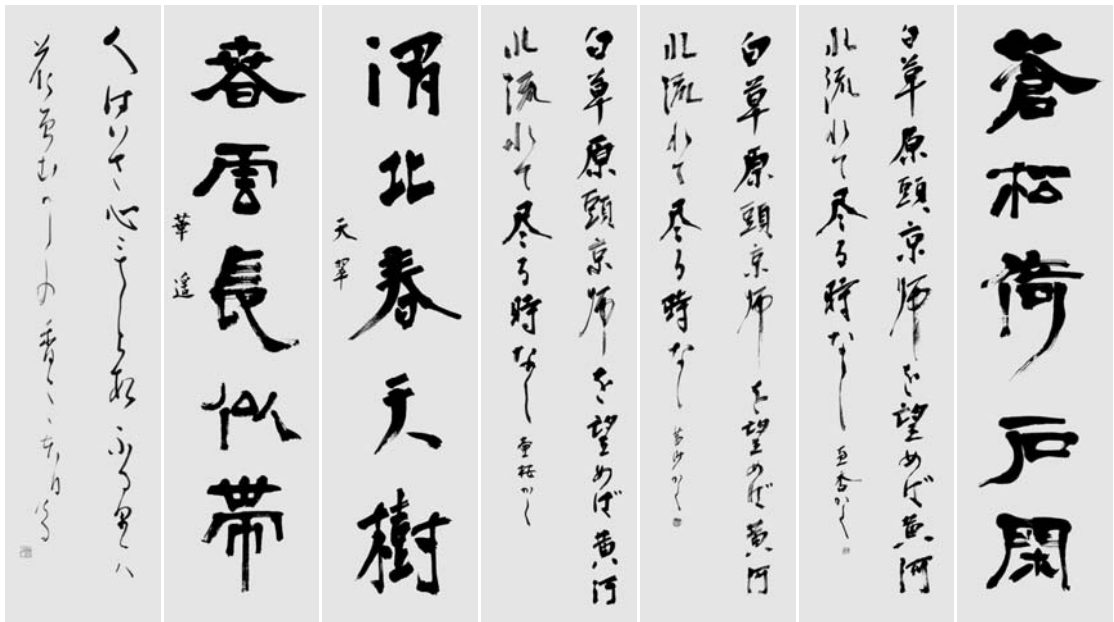 蒼松倚石閑
白草原頭京師を望めば黄河
水流れて尽る時なし 亜杏かく
白草原頭京師を望めば黄河
水流れて尽る時なし かく
白草原頭京師を望めば黄河
水流れて尽る時なし かく
渭北春天樹
天翠
春雲長似帯
華遙
人はいさ心もしら数不る里ハ
花曽むかしの香